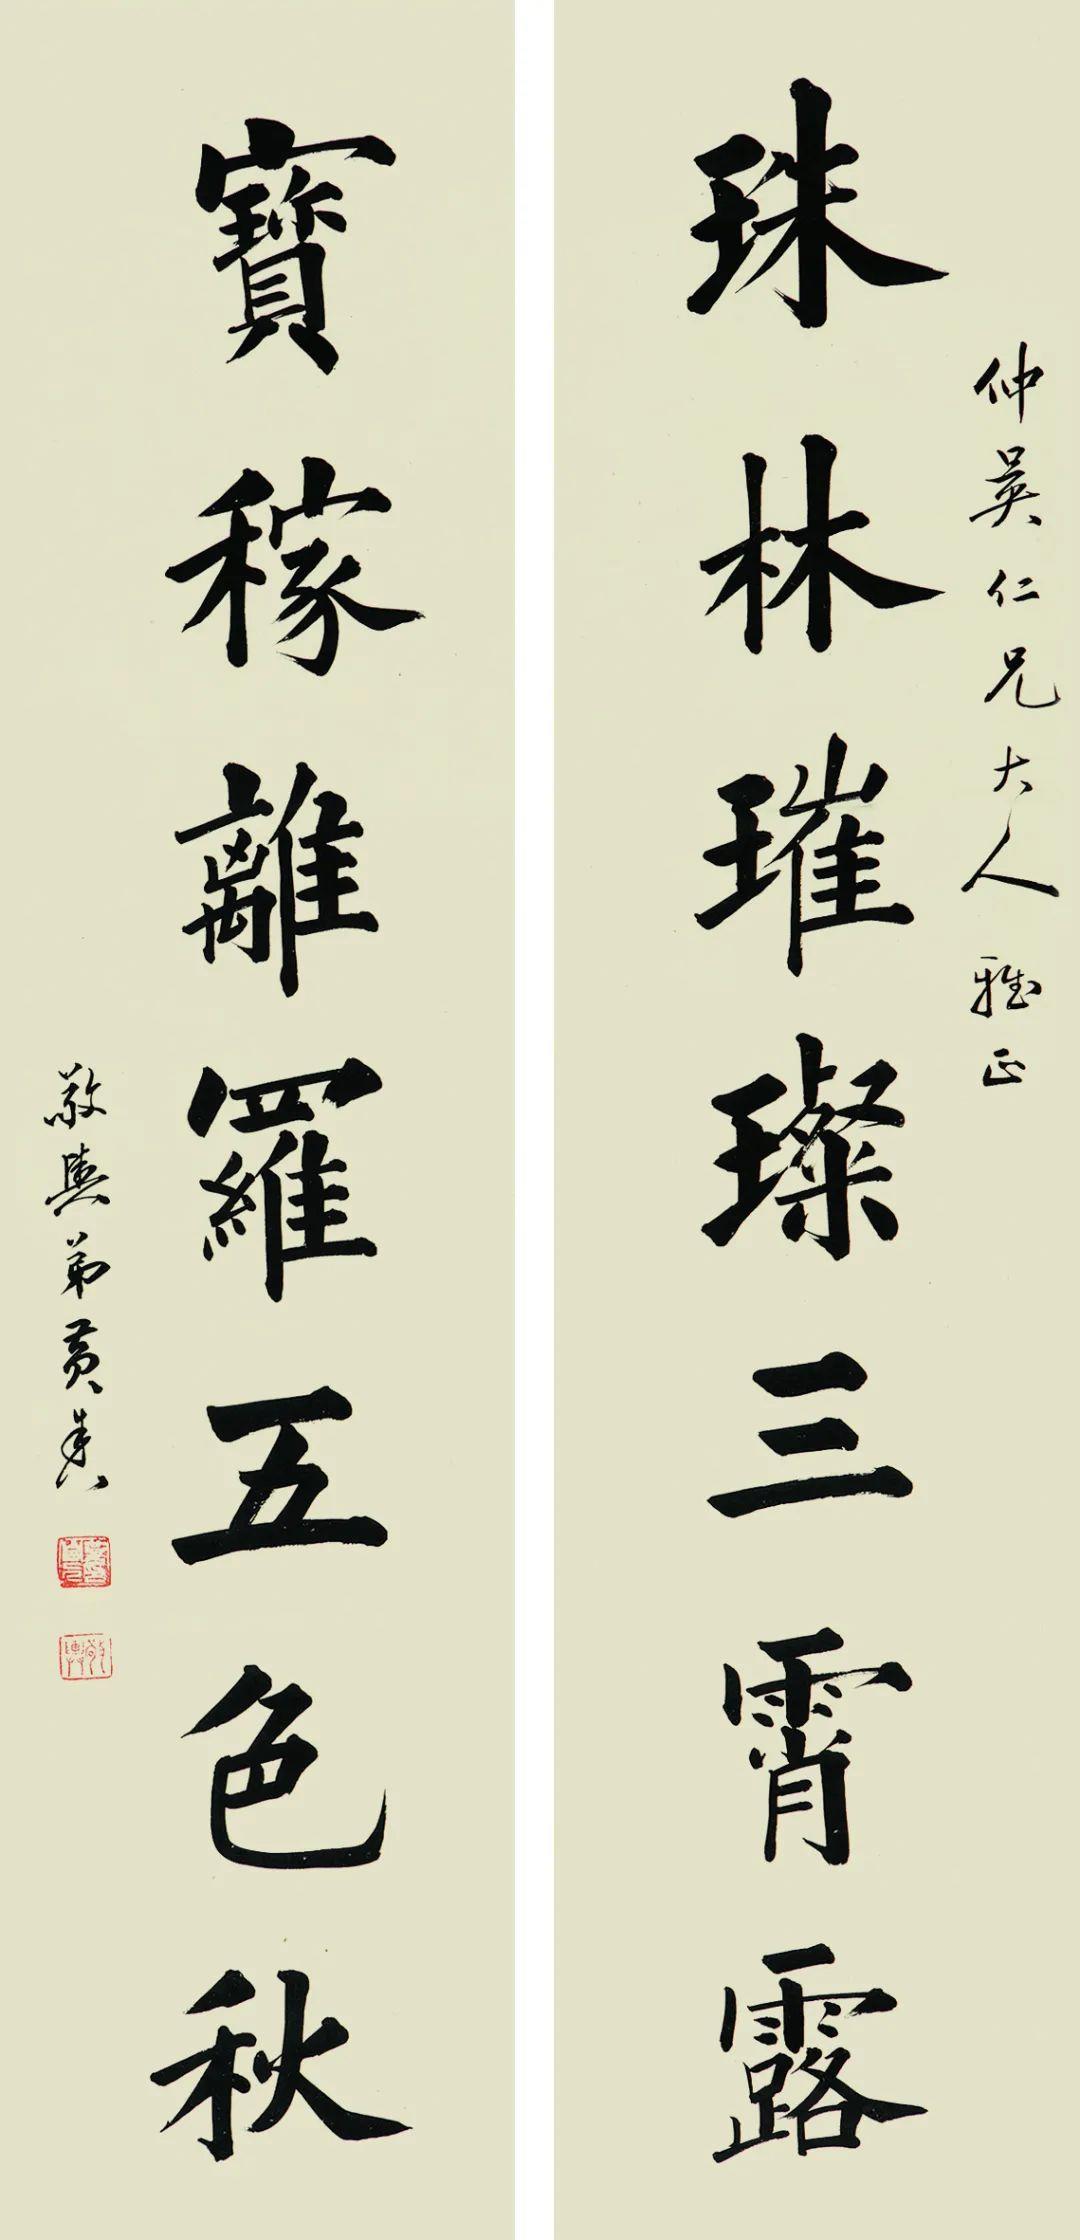 珠林璀璨三霄露
仲仁兄大人雅正
寶稼離羅五色秋
敬輿弟黄
敬輿